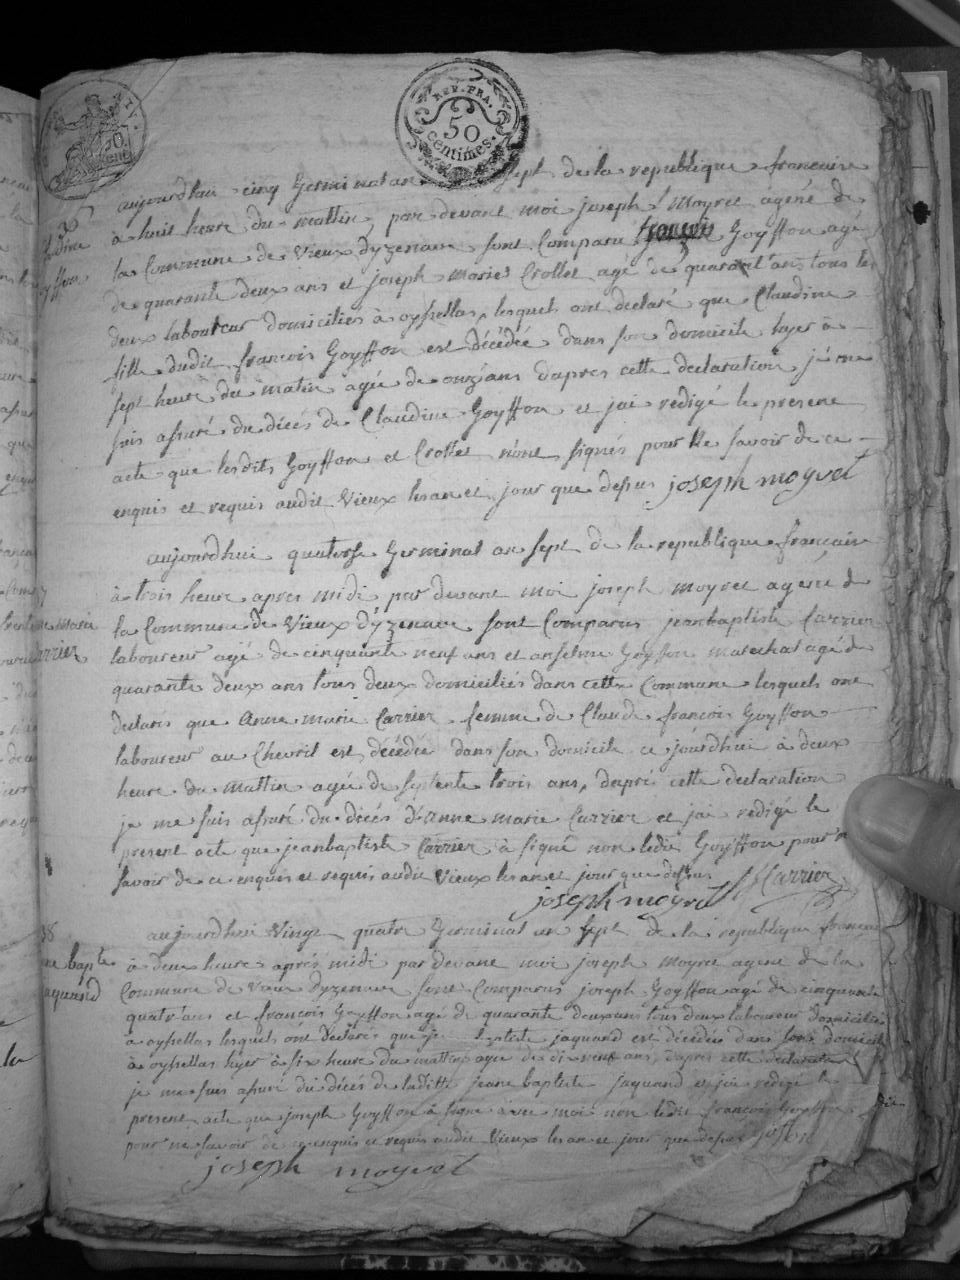 REP. FRA.
50
centimes.
aujourdhui cinq Germinal an sept de la republique francaise
à huit heure du mattin, par devant moi joseph Moyret agené de
la Commune de Vieux dyzenave sont Comparu françois Goyffon agé
de quarante deux ans et joseph Marie Crollet agé de quarant'ans tous les
deux laboureur domiciliés à oysellas, lesquels ont declaré que Claudine
fille dudit françois Goyffon est décédée dans son domicile hyer à
sept heure du matin agée de onze ans d'apres cette declaration je me
suis assuré du décés de Claudine Goyffon et jai redigé le present
acte que lesdits Goyffon et Crollet n'ont signés pour ne savoir de ce
enquis et requis audit Vieux les an et jour que dessus joseph moyret
aujourdhui quatorse Germinal an sept de la republique française
à trois heure apres midi par devant moi joseph moyret agené de
la Commune de Vieux d'yzenave sont Comparus jeanbaptiste Carrier
laboureur agé de cinquante neuf ans et anselme Goyffon marechal agé de
quarante deux ans tous deux domiciliés dans cette Commune lesquels ont
declarés que Anne marie Carrier femme de Claude françois Goyffon
laboureur au Chevril est décédée dans son domicile ce jourdhui à deux
heure du mattin agée de septente trois ans, dapré cette declaration
je me suis assuré du décés d'anne marie Carrier et jai redigé le
present acte que jeanbaptiste Carrier à signé non ledit Goyffon pour ne
savoir de ce enquis et requis audit Vieux les an et jour que dessus
Carrier
joseph moyret
38
aujourdhui Vingt quatre Germinal an sept de la republique francaise
à deux heure aprés midi par devant moi joseph Moyret agené de la
Commune de Vieux dyzenave sont Comparus joseph Goyffon agé de cinquante
quatr'ans et françois Goyffon agé de quarante deux ans tous deux laboureur domiciliés
à oysellas lesquels ont declarés que baptiste jaquand est décédée dans son domicile
à oysellas hyer à six heure du mattin agée de dix neuf ans, daprés cette declaration
je me suis assuré du décés de laditte jeane baptiste jaquand et jai redigé le
present acte que joseph Goyffon à signé avec moi non ledit françois Goyffon
pour ne savoir de ce enquis et requis audit Vieux les an et jour que dessus
joseph moyret